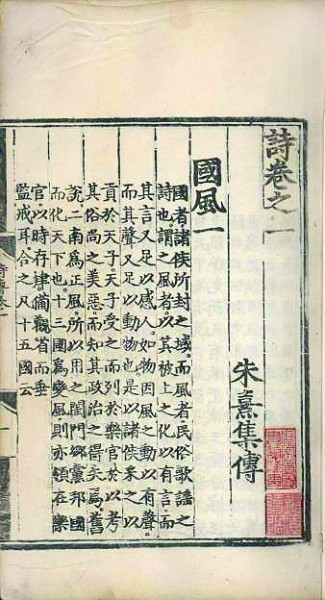 詩卷之一
朱熹集傳
國風一
國者諸侯所封之域而風者民俗歌謡之
詩也謂之風者以其被上之化以有言而
其言又足以感人如物因風之動以有聲
而其聲又足以動物也是以諸侯采之以
貢於天子天子受之而列於樂官於以考
其俗尚之美惡而知其政治之得失焉舊
說二南爲正風所以用之閨門鄉黨邦國
而化天下也十三國爲變風則亦領在樂
官以時存肄備觀省而垂
監戒耳合之凡十五國云